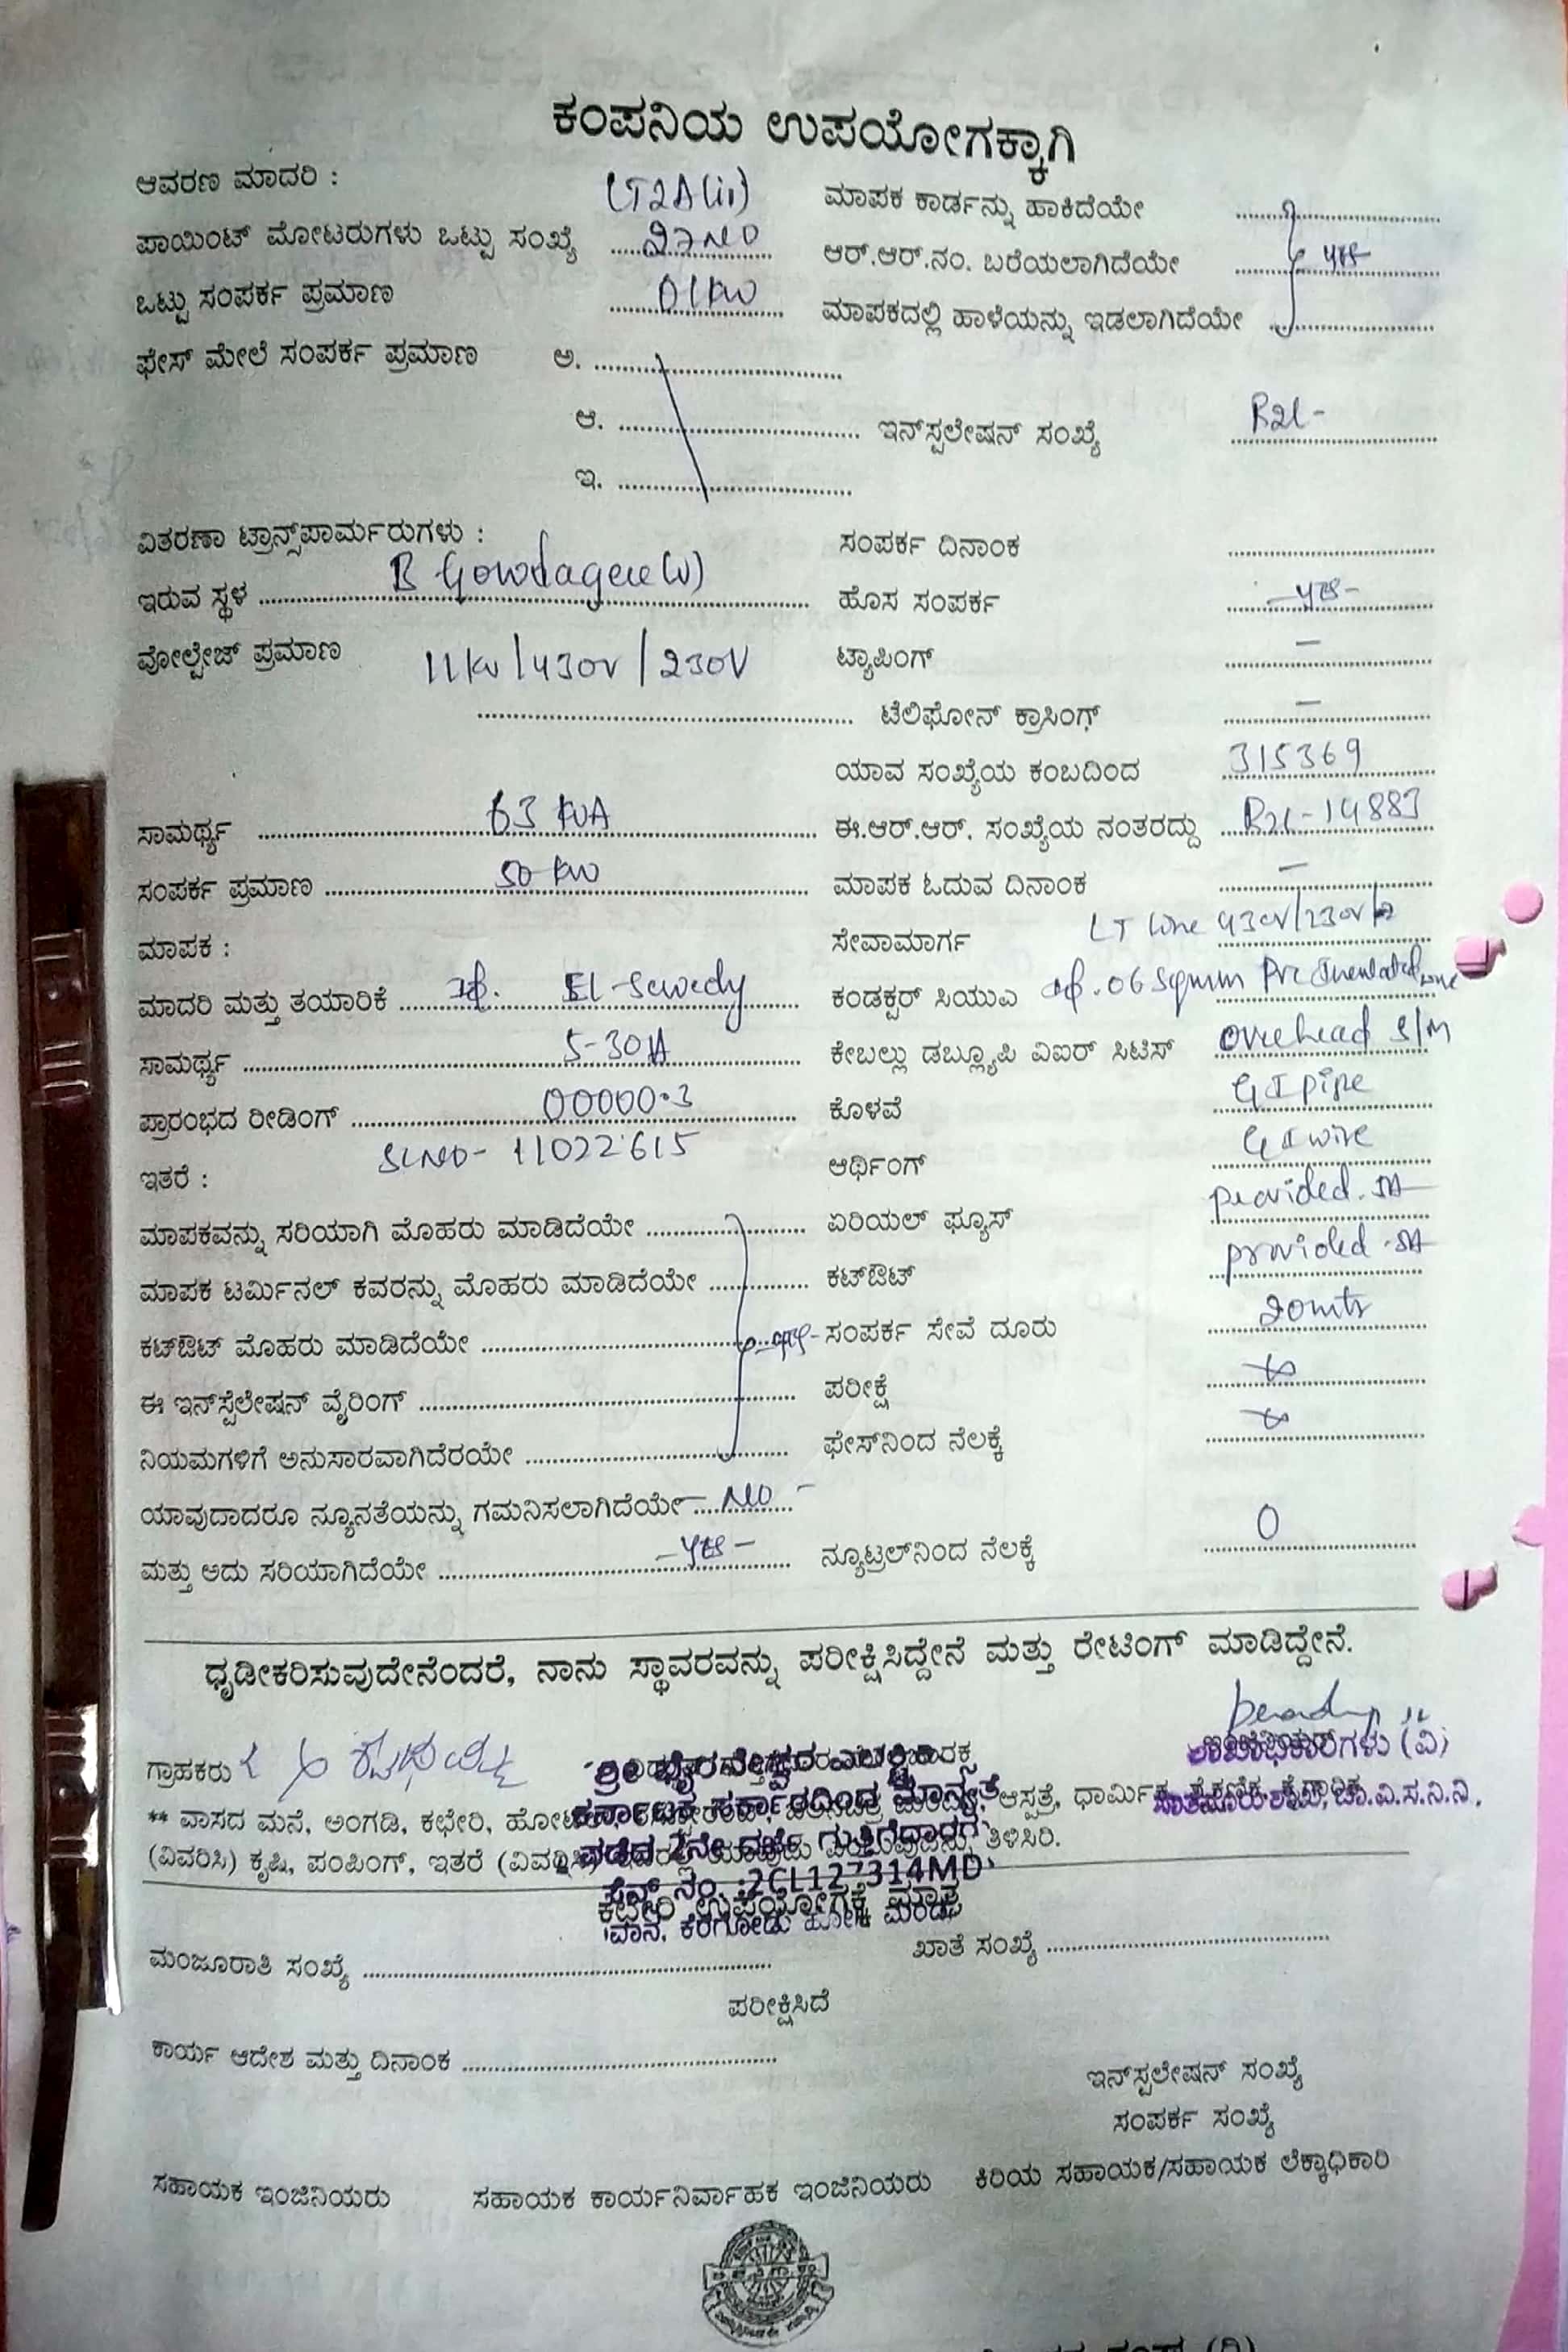 ಕಂಪನಿಯ ಉಪಯೋಗಕ್ಕಾಗಿ
ಆವರಣ ಮಾದರಿ : LT2A(ii)
ಮಾಪಕ ಕಾರ್ಡನ್ನು ಹಾಕಿದೆಯೇ
ಪಾಯಿಂಟ್ ಮೋಟರುಗಳು ಒಟ್ಟು ಸಂಖ್ಯೆ
ಆರ್.ಆರ್.ನಂ. ಬರೆಯಲಾಗಿದೆಯೇ yes
ಒಟ್ಟು ಸಂಪರ್ಕ ಪ್ರಮಾಣ 01KW
ಮಾಪಕದಲ್ಲಿ ಹಾಳೆಯನ್ನು ಇಡಲಾಗಿದೆಯೇ
ಫೇಸ್ ಮೇಲೆ ಸಂಪರ್ಕ ಪ್ರಮಾಣ ಅ.
ಆ.
ಇನ್‌ಸ್ಟಲೇಷನ್ ಸಂಖ್ಯೆ
ಇ.
ವಿತರಣಾ ಟ್ರಾನ್ಸ್‌ಪಾರ್ಮರುಗಳು :
ಸಂಪರ್ಕ ದಿನಾಂಕ
ಇರುವ ಸ್ಥಳ B Gowdagere (v)
ಹೊಸ ಸಂಪರ್ಕ -yes-
ವೋಲ್ಟೇಜ್ ಪ್ರಮಾಣ 11kv/430v/230V
ಟ್ಯಾಪಿಂಗ್ -
ಟೆಲಿಫೋನ್ ಕ್ರಾಸಿಂಗ್ -
ಯಾವ ಸಂಖ್ಯೆಯ ಕಂಬದಿಂದ 315369
ಸಾಮರ್ಥ್ಯ 63 KVA
ಈ.ಆರ್.ಆರ್. ಸಂಖ್ಯೆಯ ನಂತರದ್ದು
ಸಂಪರ್ಕ ಪ್ರಮಾಣ 50 KW
ಮಾಪಕ ಓದುವ ದಿನಾಂಕ -
ಮಾಪಕ :
ಸೇವಾಮಾರ್ಗ LT line 430v/230v
ಮಾದರಿ ಮತ್ತು ತಯಾರಿಕೆ El-Sewedy
ಕಂಡಕ್ಟರ್ ಸಿಯುಎ 06 Sqmm PVC
ಸಾಮರ್ಥ್ಯ 5-30A
ಕೇಬಲ್ಲು ಡಬ್ಲ್ಯೂಪಿ ವಿಐಆರ್ ಸಿಟಿಸ್ overhead S/M
ಪ್ರಾರಂಭದ ರೀಡಿಂಗ್ 00000.3
ಕೊಳವೆ GI pipe
SLNO- 11022615
ಇತರೆ :
ಆರ್ಥಿಂಗ್ GI wire
ಮಾಪಕವನ್ನು ಸರಿಯಾಗಿ ಮೊಹರು ಮಾಡಿದೆಯೇ
ಏರಿಯಲ್ ಫ್ಯೂಸ್ provided.
ಮಾಪಕ ಟರ್ಮಿನಲ್ ಕವರನ್ನು ಮೊಹರು ಮಾಡಿದೆಯೇ
ಕಟ್‌ಔಟ್ provided
ಕಟ್‌ಔಟ್ ಮೊಹರು ಮಾಡಿದೆಯೇ
ಸಂಪರ್ಕ ಸೇವೆ ದೂರು 20mts
ಈ ಇನ್‌ಸ್ಟೆಲೇಷನ್ ವೈರಿಂಗ್
ಪರೀಕ್ಷೆ
ನಿಯಮಗಳಿಗೆ ಅನುಸಾರವಾಗಿದೆರಯೇ
ಫೇಸ್‌ನಿಂದ ನೆಲಕ್ಕೆ
ಯಾವುದಾದರೂ ನ್ಯೂನತೆಯನ್ನು ಗಮನಿಸಲಾಗಿದೆಯೇ -NO-
ಮತ್ತು ಅದು ಸರಿಯಾಗಿದೆಯೇ -yes-
ನ್ಯೂಟ್ರಲ್‌ನಿಂದ ನೆಲಕ್ಕೆ 0
ಧೃಡೀಕರಿಸುವುದೇನೆಂದರೆ, ನಾನು ಸ್ಥಾವರವನ್ನು ಪರೀಕ್ಷಿಸಿದ್ದೇನೆ ಮತ್ತು ರೇಟಿಂಗ್ ಮಾಡಿದ್ದೇನೆ.
ಗ್ರಾಹಕರು
ಶ್ರೀ ಭೈರವೇಶ್ವರ ಎಲೆಕ್ಟ್ರಿಕಲ್ಸ್
ಶಾಖಾಧಿಕಾರಿಗಳು (ವಿ)
ಕರ್ನಾಟಕ ಸರ್ಕಾರದಿಂದ ಮಾನ್ಯತೆ
** ವಾಸದ ಮನೆ, ಅಂಗಡಿ, ಕಛೇರಿ, ಆಸ್ಪತ್ರೆ, ಧಾರ್ಮಿಕ,
ಚಾ.ವಿ.ಸ.ನಿ.ನಿ,
ಪಡೆದ 2ನೇ ದರ್ಜೆ ಗುತ್ತಿಗೆದಾರರು
(ವಿವರಿಸಿ) ಕೃಷಿ, ಪಂಪಿಂಗ್, ಇತರೆ (ವಿವರಿಸಿ) ತಿಳಿಸಿರಿ.
ನಂ. :2CL127314MD
ಕಛೇರಿ ಉಪಯೋಗಕ್ಕೆ ಮಾತ್ರ
ಮಂಜೂರಾತಿ ಸಂಖ್ಯೆ
ಖಾತೆ ಸಂಖ್ಯೆ
ಪರೀಕ್ಷಿಸಿದೆ
ಕಾರ್ಯ ಆದೇಶ ಮತ್ತು ದಿನಾಂಕ
ಇನ್‌ಸ್ಟಲೇಷನ್ ಸಂಖ್ಯೆ
ಸಂಪರ್ಕ ಸಂಖ್ಯೆ
ಸಹಾಯಕ ಇಂಜಿನಿಯರು
ಸಹಾಯಕ ಕಾರ್ಯನಿರ್ವಾಹಕ ಇಂಜಿನಿಯರು
ಕಿರಿಯ ಸಹಾಯಕ/ಸಹಾಯಕ ಲೆಕ್ಕಾಧಿಕಾರಿ